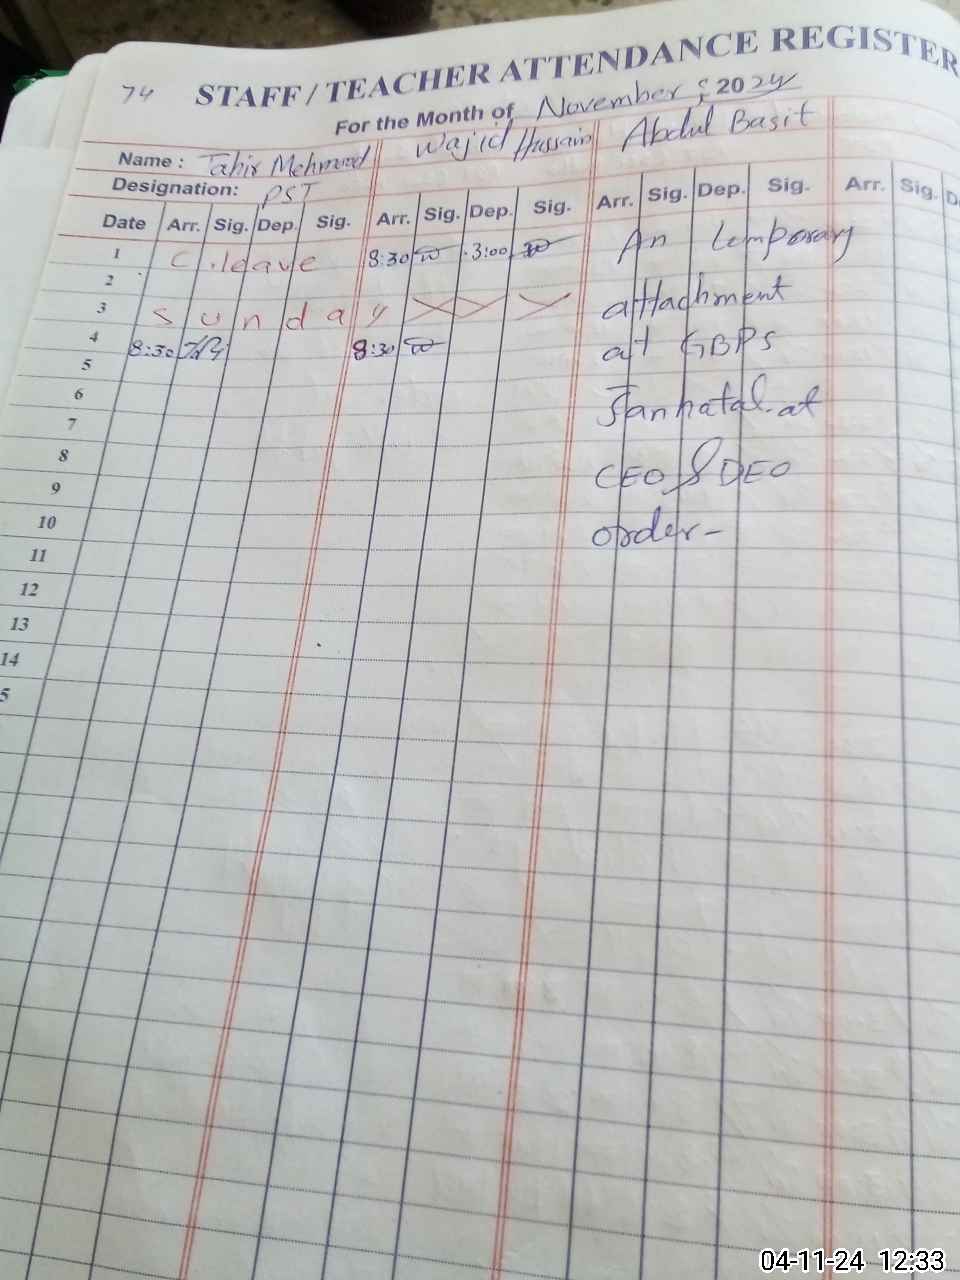 74 STAFF / TEACHER ATTENDANCE REGISTER
For the Month of November ; 2024
Name : Tahir Mehmood Wajid Hussain Abdul Basit
Designation: PST
Date Arr. Sig. Dep. Sig. Arr. Sig. Dep. Sig. Arr. Sig. Dep. Sig. Arr. Sig.
1 C. leave 8:30 3:00 An temporary
2
3 Sunday attachment
4 8:30 8:30 at GBPS
5
6 at
7
8 CEO & DEO
9
10 order-
11
12
13
14
5
04-11-24 12:33